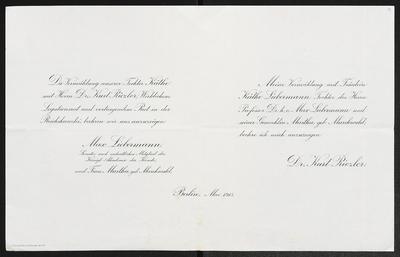 Die Vermählung unserer Tochter Käthe
mit Herrn Dr. Kurt Riezler, Wirklichem
Legationsrat und vortragendem Rat in der
Reichskanzlei, beehren wir uns anzuzeigen.
Max Liebermann,
Senator und ordentliches Mitglied der
Königl. Akademie der Künste,
und Frau Martha, geb. Marckwald.
Meine Vermählung mit Fräulein
Käthe Liebermann, Tochter des Herrn
Professor Dr. h. c. Max Liebermann und
seiner Gemahlin Martha, geb. Marckwald,
beehre ich mich anzuzeigen.
Dr. Kurt Riezler.
Berlin, Mai 1915.